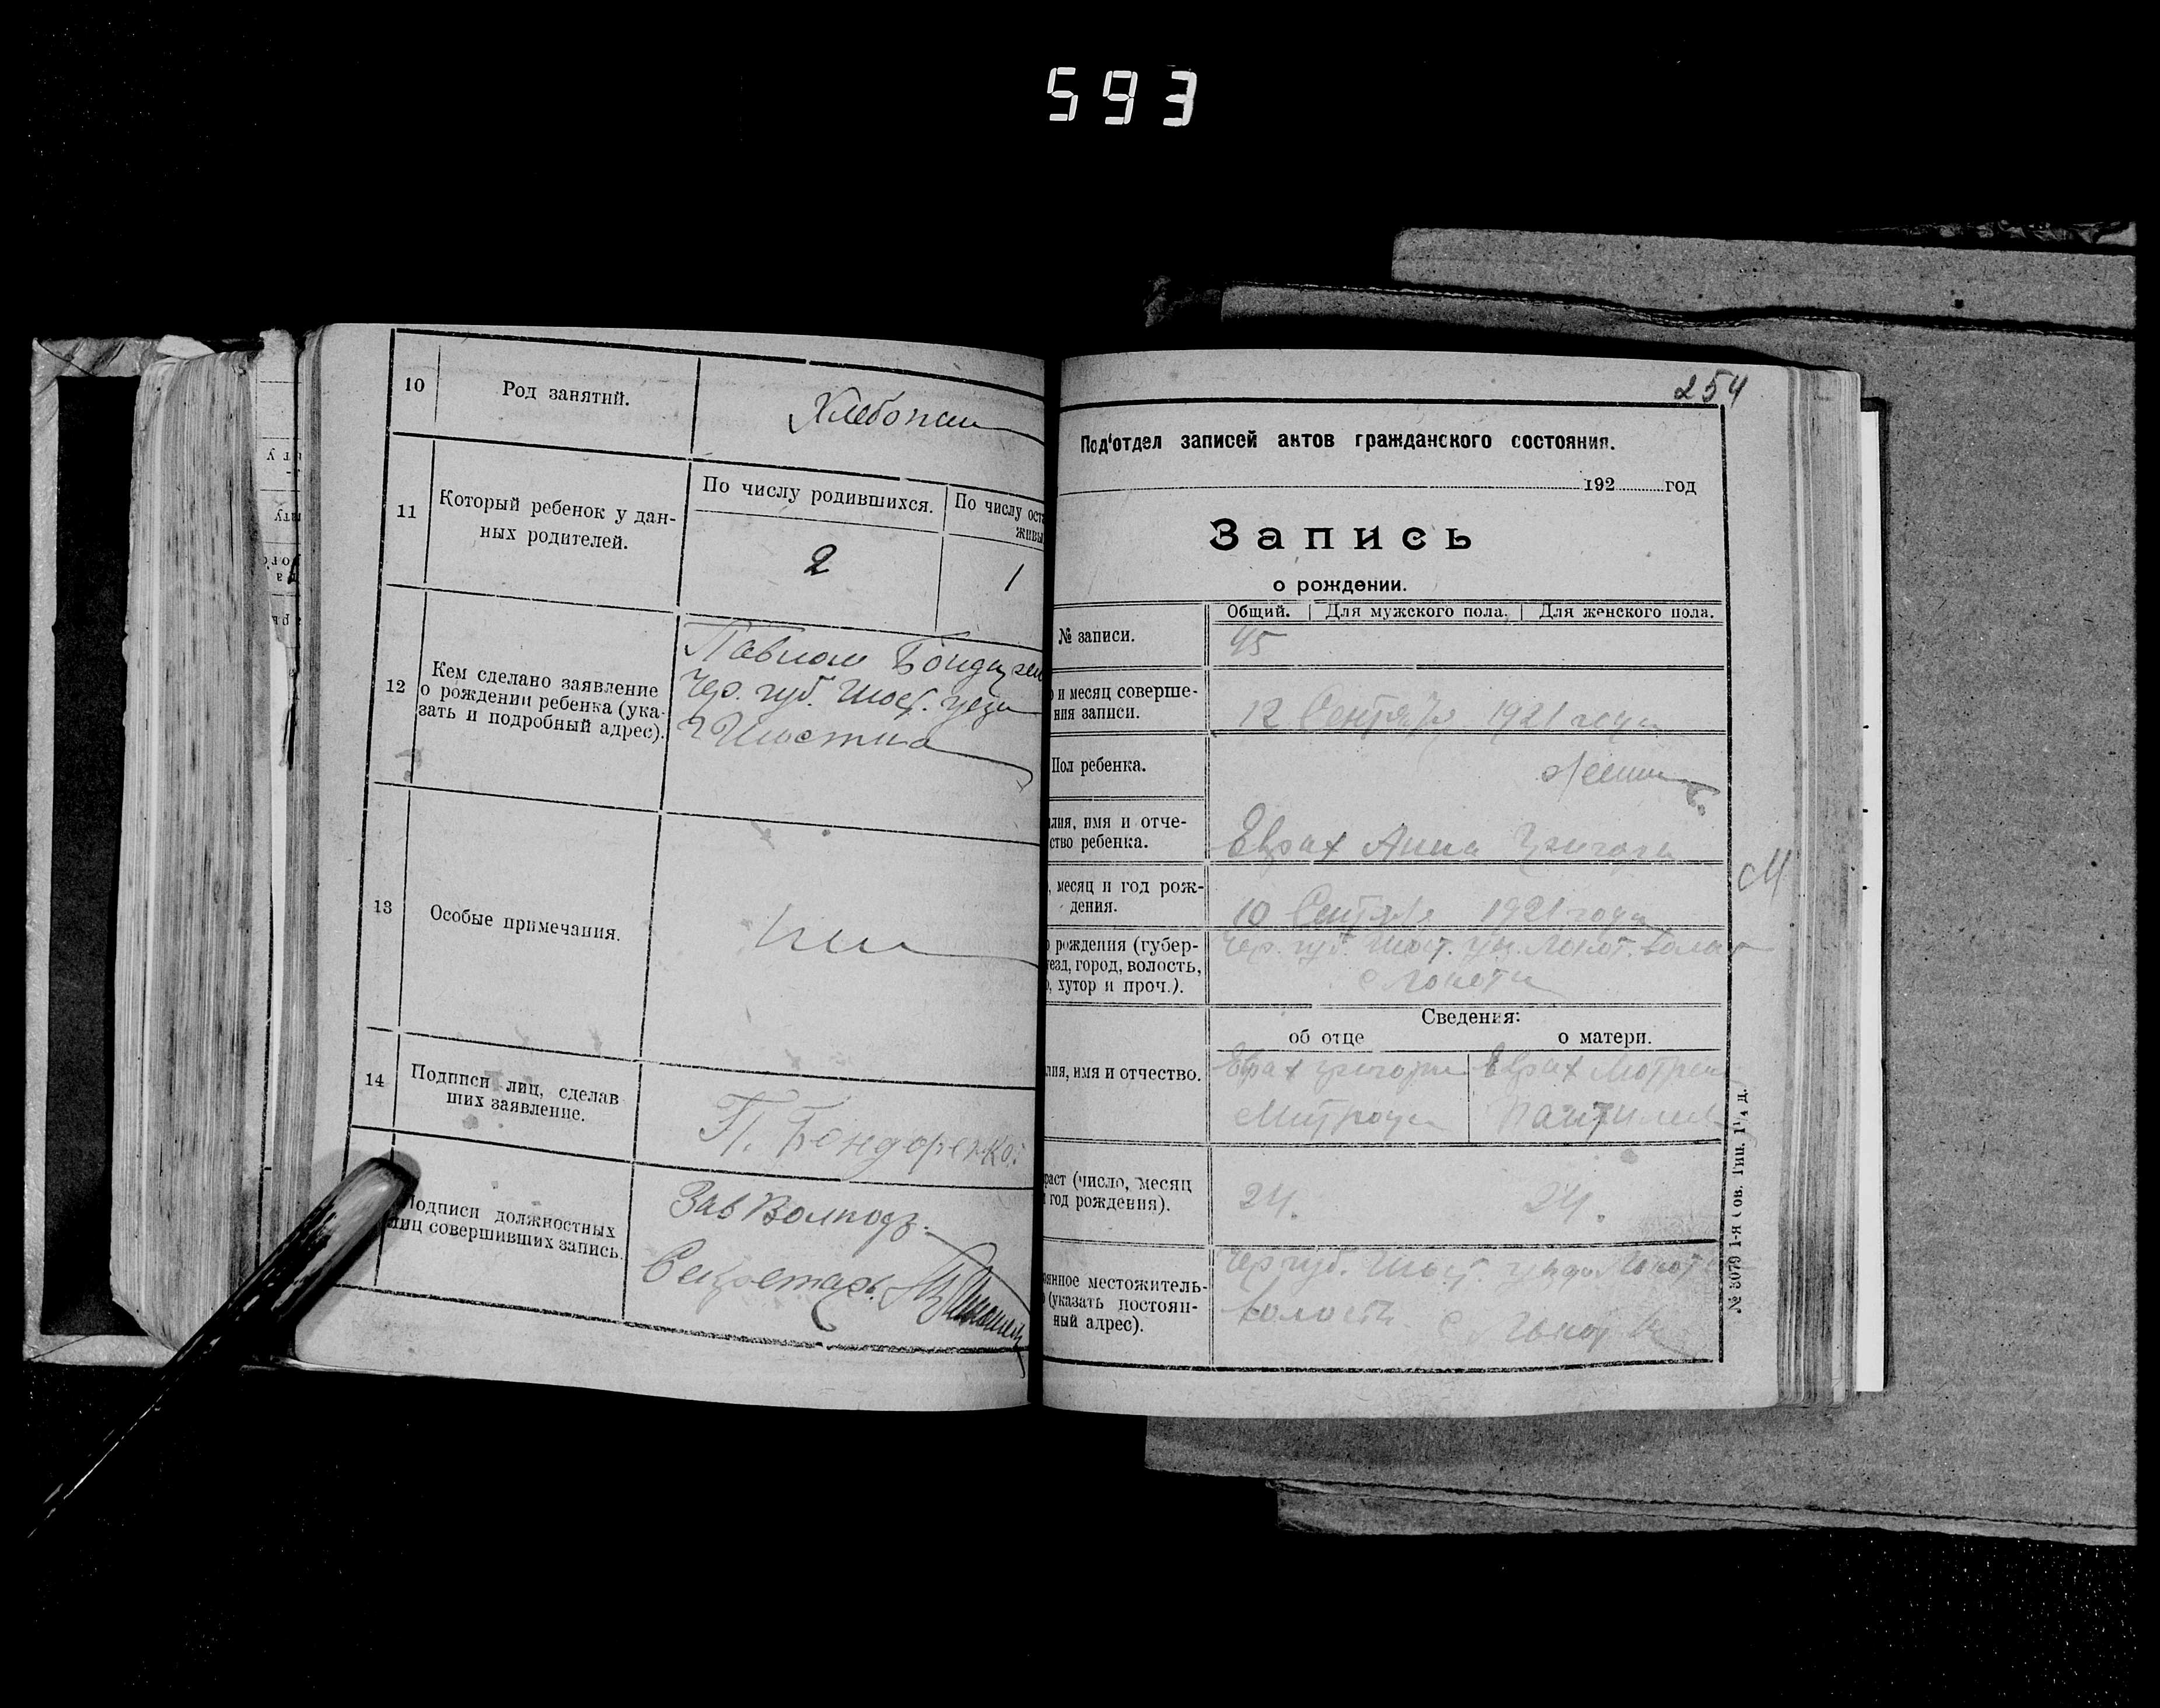 593
10 Род занятий. Хлебопаш
11 Который ребенок у дан-
ных родителей.
По числу родившихся. По числу оста
живы
2 1
12 Кем сделано заявление
о рождении ребенка (ука-
зать и подробный адрес).
Павлом Бондарен
Чер. губ. Шост. уезд
г Шостка
13 Особые примечания.
14 Подписи лиц, сделав
ших заявление.
П. Бондаренко
Подписи должностных
лиц совершивших запись.
Зав
Секретарь
254
Под'отдел записей актов гражданского состояния.
192 год
Запись
о рождении.
Общий. Для мужского пола. Для женского пола.
№ записи. 45
и месяц соверше-
ния записи. 12 Сентября 1921 года
Пол ребенка. Женск
лия, имя и отче-
ство ребенка. Анна Григорь
, месяц и год рож-
дения. 10 Сентября 1921 года
рождения (губер-
езд, город, волость,
, хутор и проч.).
Чер. губ. Шост. уез. Локот. Волост
с Локотки
Сведения:
об отце о матери.
лия, имя и отчество.
Григорий Мотрена
Митроф
раст (число, месяц
год рождения). 24. 24.
янное местожитель-
(указать постоян-
ный адрес).
Чер губ. Шост уезда Локот
волости с Локотки
М
№ 3079 1-я Сов. Тип.